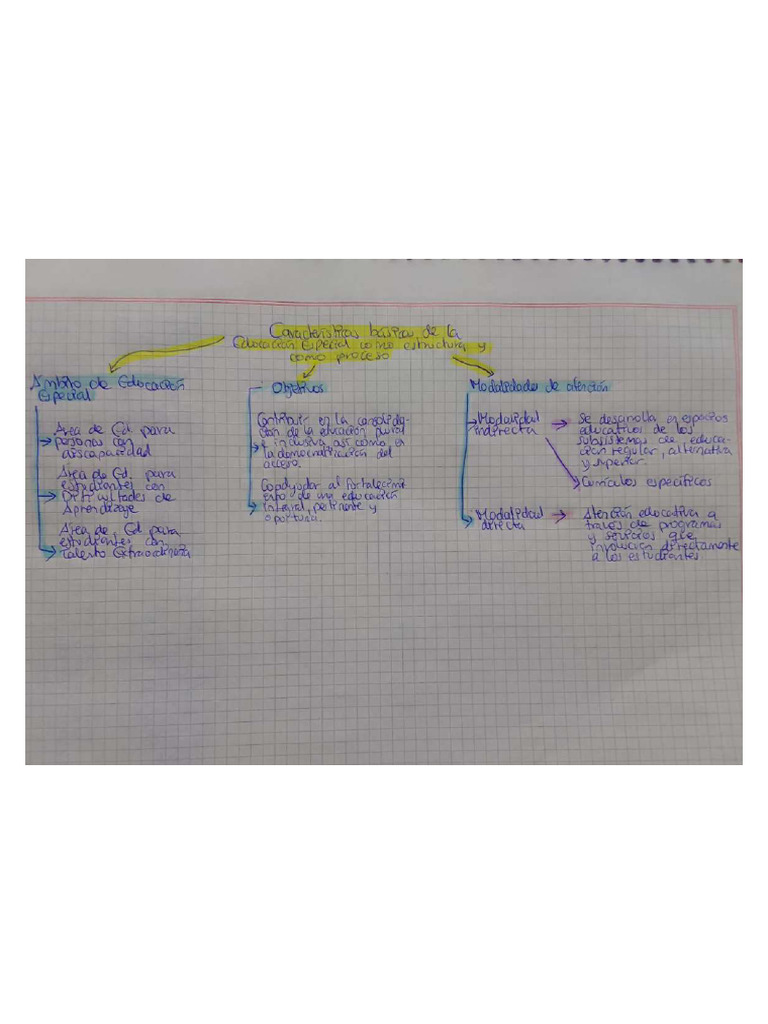 Características básicas de la
Educación Especial como estructura y
como proceso
Ámbito de Educación
Especial
Área de Ed. para
personas con
discapacidad
Área de Ed. para
estudiantes con
Dificultades de
Aprendizaje
Área de Ed. para
estudiantes con
Talento Extraordinario
Objetivos
Contribuir en la consolida-
ción de la educación plural
e inclusiva, así como, en
la democratización del
acceso.
Coadyudar al fortalecimi
ento de una educación
integral, pertinente y
oportuna.
Modalidades de atención
Modalidad
indirecta
Se desarrolla en espacios
educativos de los
subsistemas de educa-
ción regular, alternativa
y superior.
Currículos específicos
Modalidad
directa
Atención educativa a
través de programas
y servicios que
involucran directamente
a los estudiantes